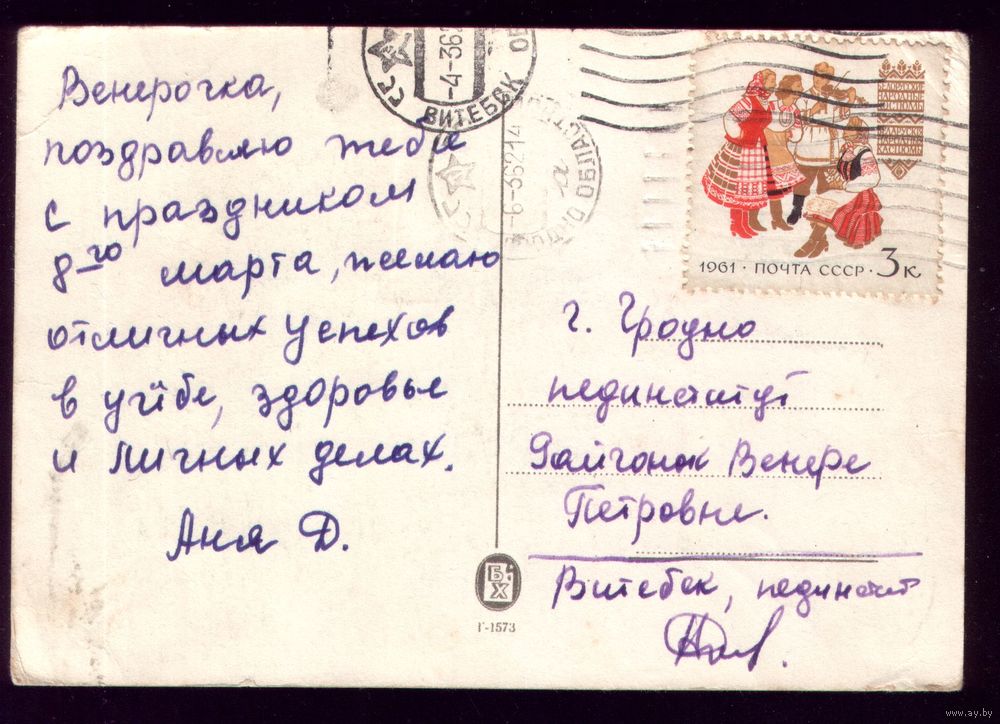 Венерочка,
поздравляю тебя
с праздником
8-го марта, желаю
отличных успехов
в учёбе, здоровье
и личных делах.
Аня Д.
ВИТЕБСК
БЕЛОРУССКИЕ
НАРОДНЫЕ
КОСТЮМЫ
БЕЛАРУСКІЯ
НАРОДНЫЯ
КАСЦЮМЫ
1961 · ПОЧТА СССР · 3 к
г. Гродно
пединститут
Венере
Петровне.
Витебск, пединстит
Б.Х
Г-1573
www.ay.by